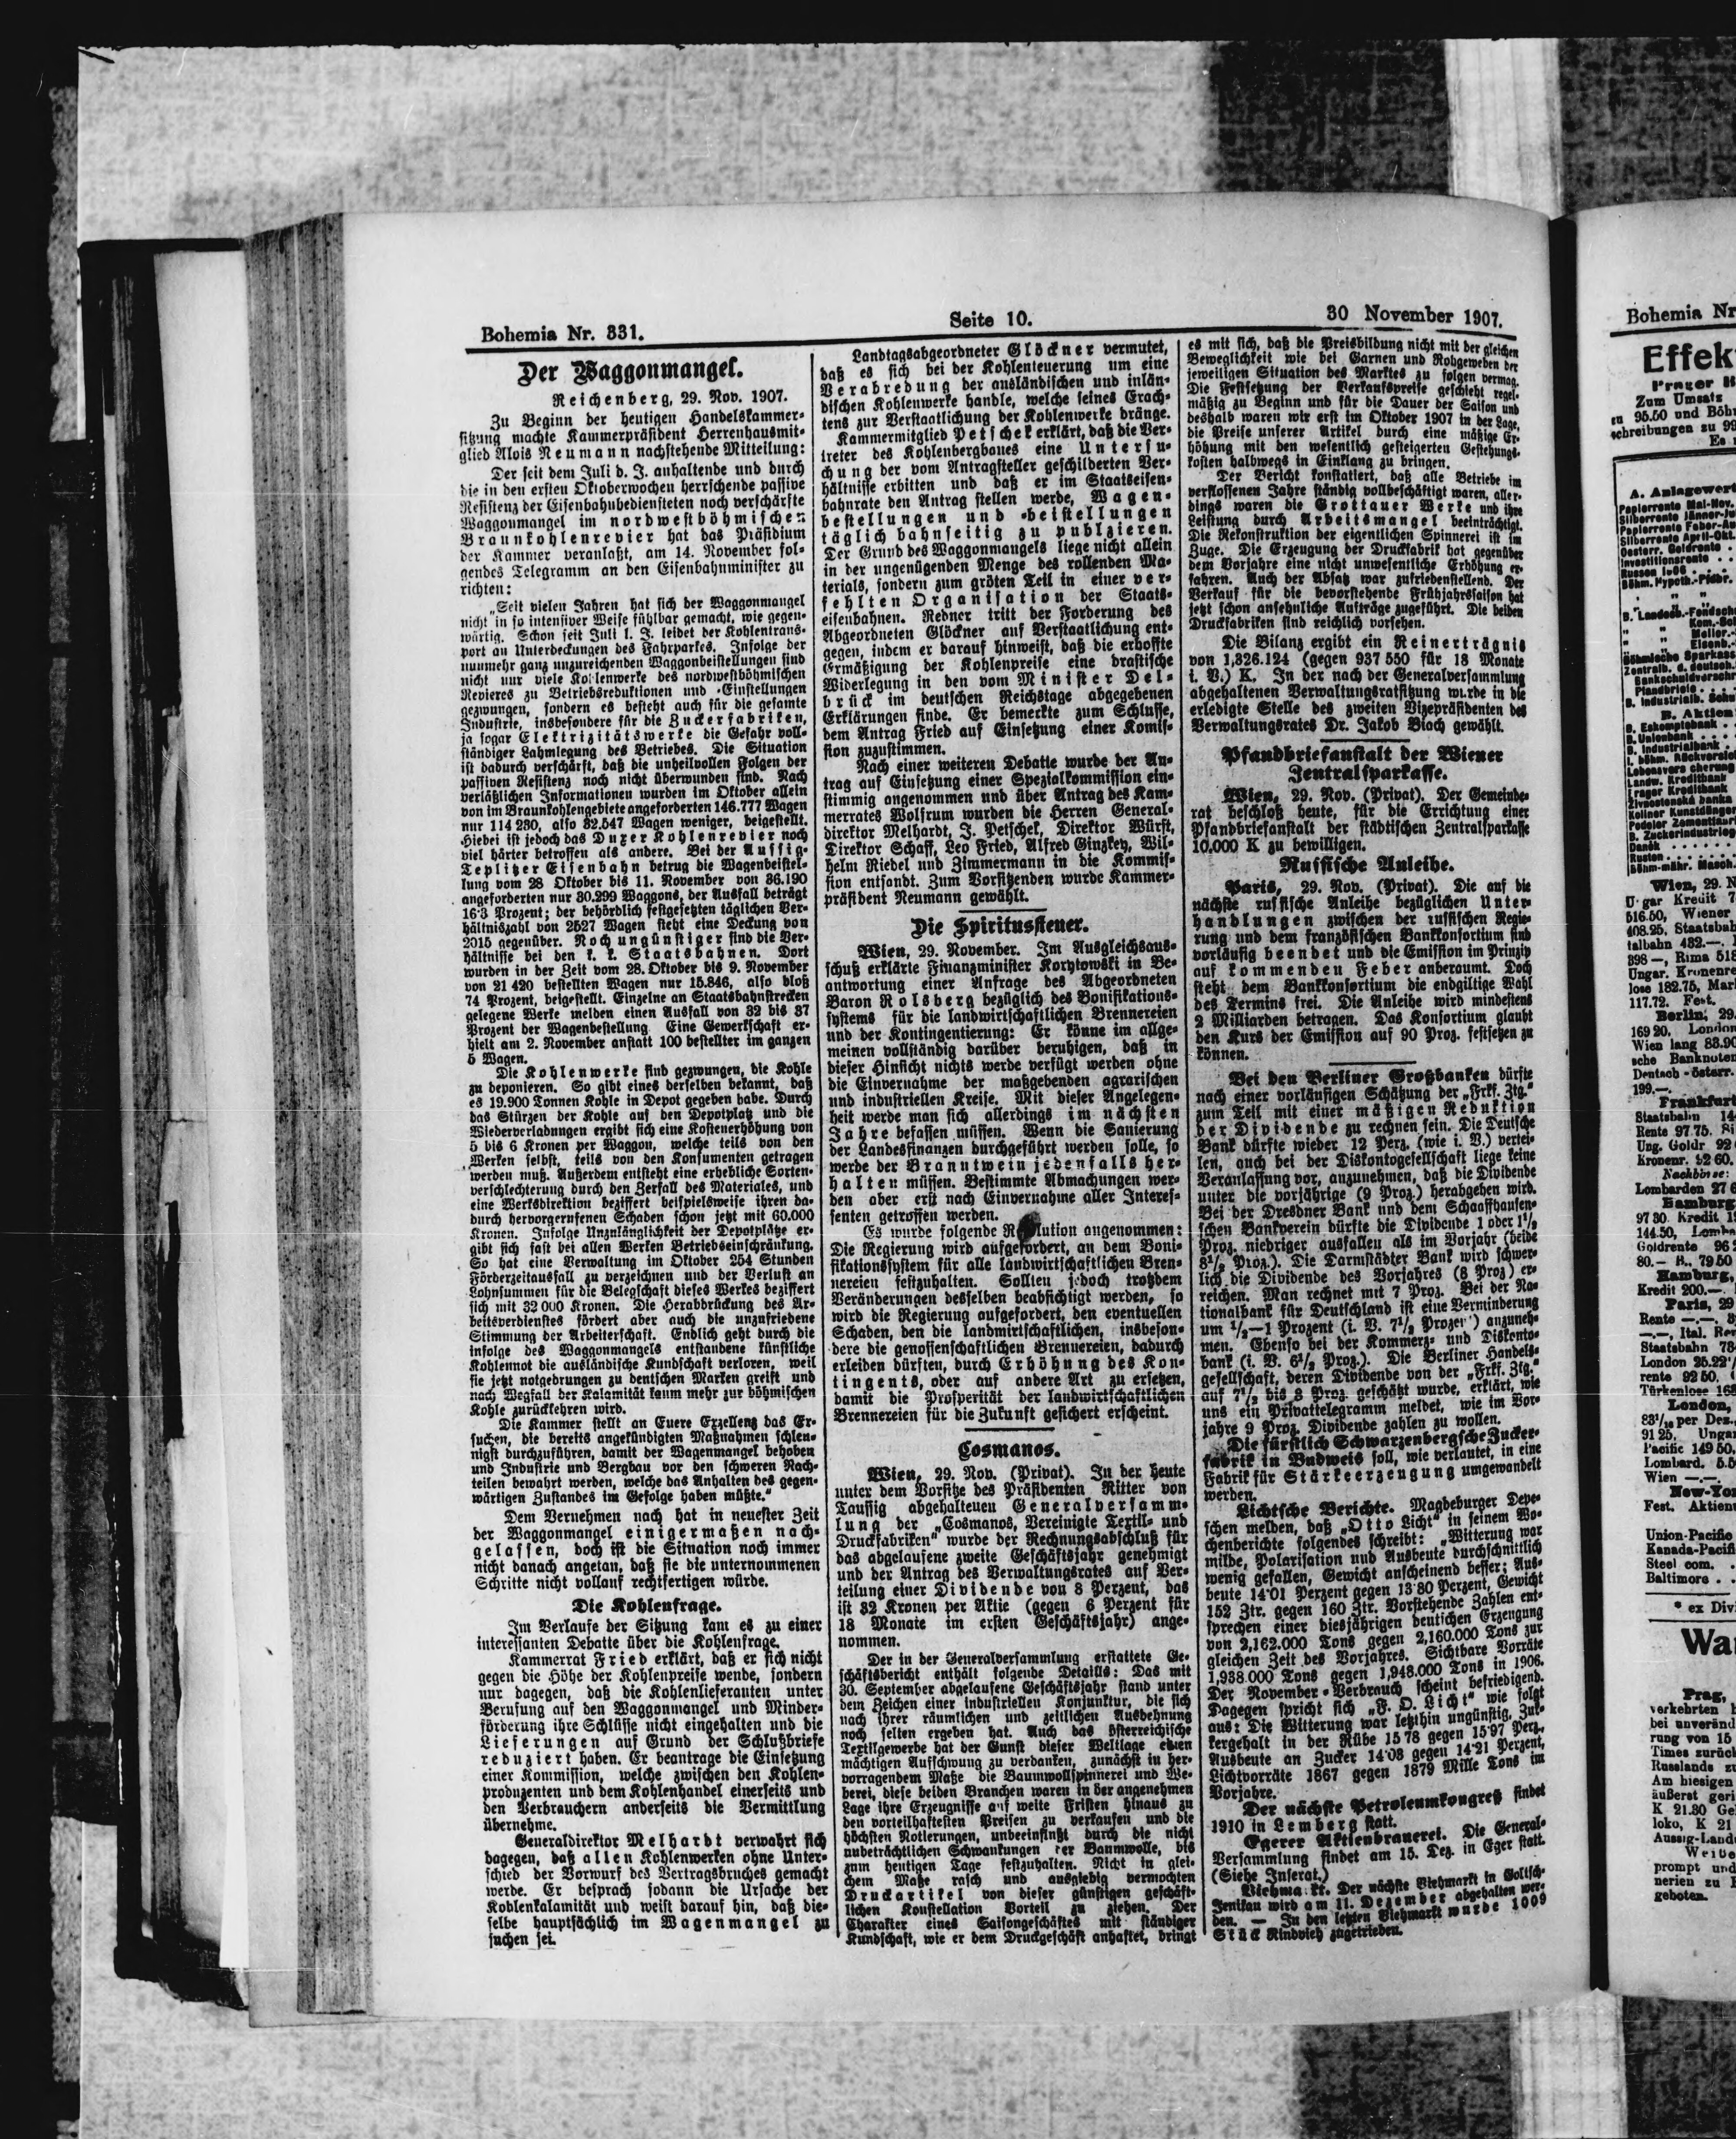 Bohemia Nr. 331.
Seite 10.
30 November 1907.
Der Waggonmangel.
Reichenberg, 29. Nov. 1907.
Zu Beginn der heutigen Handelskammer-
sitzung machte Kammerpräsident Herrenhausmit-
glied Alois Neumann nachstehende Mitteilung:
Der seit dem Juli d. J. anhaltende und durch
die in den ersten Oktoberwochen herrschende passive
Resistenz der Eisenbahnbediensteten noch verschärfte
Waggonmangel im nordwestböhmischen
Braunkohlenrevier hat das Präsidium
der Kammer veranlaßt, am 14. November fol-
gendes Telegramm an den Eisenbahnminister zu
richten:
„Seit vielen Jahren hat sich der Waggonmangel
nicht in so intensiver Weise fühlbar gemacht, wie gegen-
wärtig. Schon seit Juli l. J. leidet der Kohlentrans-
port an Unterdeckungen des Fahrparkes. Infolge der
nunmehr ganz unzureichenden Waggonbeistellungen sind
nicht nur viele Kohlenwerke des nordwestböhmischen
Revieres zu Betriebsreduktionen und -Einstellungen
gezwungen, sondern es besteht auch für die gesamte
Industrie, insbesondere für die Zuckerfabriken,
ja sogar Elektrizitätswerke die Gefahr voll-
ständiger Lahmlegung des Betriebes. Die Situation
ist dadurch verschärft, daß die unheilvollen Folgen der
passiven Resistenz noch nicht überwunden sind. Nach
verläßlichen Informationen wurden im Oktober allein
von im Braunkohlengebiete angeforderten 146.777 Wagen
nur 114 230, also 32.547 Wagen weniger, beigestellt.
Hiebei ist jedoch das Duxer Kohlenrevier noch
viel härter betroffen als andere. Bei der Aussig-
Teplitzer Eisenbahn betrug die Wagenbeistel-
lung vom 28 Oktober bis 11. November von 36.190
angeforderten nur 30.299 Waggons, der Ausfall beträgt
16·3 Prozent; der behördlich festgesetzten täglichen Ver-
hältniszahl von 2527 Wagen steht eine Deckung von
2015 gegenüber. Noch ungünstiger sind die Ver-
hältnisse bei den k. k. Staatsbahnen. Dort
wurden in der Zeit vom 28. Oktober bis 9. November
von 21 420 bestellten Wagen nur 15.846, also bloß
74 Prozent, beigestellt. Einzelne an Staatsbahnstrecken
gelegene Werke melden einen Ausfall von 32 bis 37
Prozent der Wagenbestellung Eine Gewerkschaft er-
hielt am 2. November anstatt 100 bestellter im ganzen
5 Wagen.
Die Kohlenwerke sind gezwungen, die Kohle
zu deponieren. So gibt eines derselben bekannt, daß
es 19.900 Tonnen Kohle in Depot gegeben habe. Durch
das Stürzen der Kohle auf den Depotplatz und die
Wiederverladungen ergibt sich eine Kostenerhöhung von
5 bis 6 Kronen per Waggon, welche teils von den
Werken selbst, teils von den Konsumenten getragen
werden muß. Außerdem entsteht eine erhebliche Sorten-
verschlechterung durch den Zerfall des Materiales, und
eine Werksdirektion beziffert beispielsweise ihren da-
durch hervorgerufenen Schaden schon jetzt mit 60.000
Kronen. Infolge Unzulänglichkeit der Depotplätze er-
gibt sich fast bei allen Werken Betriebseinschränkung.
So hat eine Verwaltung im Oktober 254 Stunden
Förderzeitausfall zu verzeichnen und der Verlust an
Lohnsummen für die Belegschaft dieses Werkes beziffert
sich mit 32 000 Kronen. Die Herabdrückung des Ar-
beitsverdienstes fördert aber auch die unzufriedene
Stimmung der Arbeiterschaft. Endlich geht durch die
infolge des Waggonmangels entstandene künstliche
Kohlennot die ausländische Kundschaft verloren, weil
sie jetzt notgedrungen zu deutschen Marken greift und
nach Wegfall der Kalamität kaum mehr zur böhmischen
Kohle zurückkehren wird.
Die Kammer stellt an Euere Exzellenz das Er-
suchen, die bereits angekündigten Maßnahmen schleu-
nigst durchzuführen, damit der Wagenmangel behoben
und Industrie und Bergbau vor den schweren Nach-
teilen bewahrt werden, welche das Anhalten des gegen-
wärtigen Zustandes im Gefolge haben müßte.“
Dem Vernehmen nach hat in neuester Zeit
der Waggonmangel einigermaßen nach-
gelassen, doch ist die Situation noch immer
nicht danach angetan, daß sie die unternommenen
Schritte nicht vollauf rechtfertigen würde.
Die Kohlenfrage.
Im Verlaufe der Sitzung kam es zu einer
interessanten Debatte über die Kohlenfrage.
Kammerrat Fried erklärt, daß er sich nicht
gegen die Höhe der Kohlenpreise wende, sondern
nur dagegen, daß die Kohlenlieferanten unter
Berufung auf den Waggonmangel und Minder-
förderung ihre Schlüsse nicht eingehalten und die
Lieferungen auf Grund der Schlußbriefe
reduziert haben. Er beantrage die Einsetzung
einer Kommission, welche zwischen den Kohlen-
produzenten und dem Kohlenhandel einerseits und
den Verbrauchern anderseits die Vermittlung
übernehme.
Generaldirektor Melhardt verwahrt sich
dagegen, daß allen Kohlenwerken ohne Unter-
schied der Vorwurf des Vertragsbruches gemacht
werde. Er besprach sodann die Ursache der
Kohlenkalamität und weist darauf hin, daß die-
selbe hauptsächlich im Wagenmangel zu
suchen sei.
Landtagsabgeordneter Glöckner vermutet,
daß es sich bei der Kohlenteuerung um eine
Verabredung der ausländischen und inlän-
dischen Kohlenwerke handle, welche seines Erach-
tens zur Verstaatlichung der Kohlenwerke dränge.
Kammermitglied Petschek erklärt, daß die Ver-
treter des Kohlenbergbaues eine Untersu-
chung der vom Antragsteller geschilderten Ver-
hältnisse erbitten und daß er im Staatseisen-
bahnrate den Antrag stellen werde, Wagen-
bestellungen und -beistellungen
täglich bahnseitig zu publzieren.
Der Grund des Waggonmangels liege nicht allein
in der ungenügenden Menge des rollenden Ma-
terials, sondern zum gröten Teil in einer ver-
fehlten Organisation der Staats-
eisenbahnen. Redner tritt der Forderung des
Abgeordneten Glöckner auf Verstaatlichung ent-
gegen, indem er darauf hinweist, daß die erhoffte
Ermäßigung der Kohlenpreise eine drastische
Widerlegung in den vom Minister Del-
brück im deutschen Reichstage abgegebenen
Erklärungen finde. Er bemerkte zum Schlusse,
dem Antrag Fried auf Einsetzung einer Komis-
sion zuzustimmen.
Nach einer weiteren Debatte wurde der An-
trag auf Einsetzung einer Spezialkommission ein-
stimmig angenommen und über Antrag des Kam-
merrates Wolfrum wurden die Herren General-
direktor Melhardt, J. Petschek, Direktor Würst,
Direktor Schaff, Leo Fried, Alfred Ginzkey, Wil-
helm Riedel und Zimmermann in die Kommis-
sion entsandt. Zum Vorsitzenden wurde Kammer-
präsident Neumann gewählt.
Die Spiritussteuer.
Wien, 29. November. Im Ausgleichsaus-
schuß erklärte Finanzminister Korytowski in Be-
antwortung einer Anfrage des Abgeordneten
Baron Rolsberg bezüglich des Bonifikations-
systems für die landwirtschaftlichen Brennereien
und der Kontingentierung: Er könne im allge-
meinen vollständig darüber beruhigen, daß in
dieser Hinsicht nichts werde verfügt werden ohne
die Einvernahme der maßgebenden agrarischen
und industriellen Kreise. Mit dieser Angelegen-
heit werde man sich allerdings im nächsten
Jahre befassen müssen. Wenn die Sanierung
der Landesfinanzen durchgeführt werden solle, so
werde der Branntwein jedenfalls her-
halten müssen. Bestimmte Abmachungen wer-
den aber erst nach Einvernahme aller Interes-
senten getroffen werden.
Es wurde folgende R lution angenommen:
Die Regierung wird aufgefordert, an dem Boni-
fikationssystem für alle landwirtschaftlichen Bren-
nereien festzuhalten. Sollten jedoch trotzdem
Veränderungen desselben beabsichtigt werden, so
wird die Regierung aufgefordert, den eventuellen
Schaden, den die landwirtschaftlichen, insbeson-
dere die genossenschaftlichen Brennereien, dadurch
erleiden dürften, durch Erhöhung des Kon-
tingents, oder auf andere Art zu ersetzen,
damit die Prosperität der landwirtschaftlichen
Brennereien für die Zukunft gesichert erscheint.
Cosmanos.
Wien, 29. Nov. (Privat). In der heute
unter dem Vorsitze des Präsidenten Ritter von
Taussig abgehaltenen Generalversamm-
lung der „Cosmanos, Vereinigte Textil- und
Druckfabriken“ wurde der Rechnungsabschluß für
das abgelaufene zweite Geschäftsjahr genehmigt
und der Antrag des Verwaltungsrates auf Ver-
teilung einer Dividende von 8 Perzent, das
ist 32 Kronen per Aktie (gegen 6 Perzent für
18 Monate im ersten Geschäftsjahr) ange-
nommen.
Der in der Generalversammlung erstattete Ge-
schäftsbericht enthält folgende Details: Das mit
30. September abgelaufene Geschäftsjahr stand unter
dem Zeichen einer industriellen Konjunktur, die sich
nach ihrer räumlichen und zeitlichen Ausdehnung
noch selten ergeben hat. Auch das österreichische
Textilgewerbe hat der Gunst dieser Weltlage einen
mächtigen Aufschwung zu verdanken, zunächst in her-
vorragendem Maße die Baumwollspinnerei und We-
berei, diese beiden Branchen waren in der angenehmen
Lage ihre Erzeugnisse auf weite Fristen hinaus zu
den vorteilhaftesten Preisen zu verkaufen und die
höchsten Notierungen, unbeeinflußt durch die nicht
unbeträchtlichen Schwankungen der Baumwolle, bis
zum heutigen Tage festzuhalten. Nicht in glei-
chem Maße rasch und ausgiebig vermochten
Druckartikel von dieser günstigen geschäft-
lichen Konstellation Vorteil zu ziehen. Der
Charakter eines Saisongeschäftes mit ständiger
Kundschaft, wie er dem Druckgeschäft anhaftet, bringt
es mit sich, daß die Preisbildung nicht mit der gleichen
Beweglichkeit wie bei Garnen und Rohgeweben der
jeweiligen Situation des Marktes zu folgen vermag.
Die Festsetzung der Verkaufspreise geschieht regel-
mäßig zu Beginn und für die Dauer der Saison und
deshalb waren wir erst im Oktober 1907 in der Lage,
die Preise unserer Artikel durch eine mäßige Er-
höhung mit den wesentlich gesteigerten Gestehungs-
kosten halbwegs in Einklang zu bringen.
Der Bericht konstatiert, daß alle Betriebe im
verflossenen Jahre ständig vollbeschäftigt waren, aller-
dings waren die Grottauer Werke und ihre
Leistung durch Arbeitsmangel beeinträchtigt.
Die Rekonstruktion der eigentlichen Spinnerei ist im
Zuge. Die Erzeugung der Druckfabrik hat gegenüber
dem Vorjahre eine nicht unwesentliche Erhöhung er-
fahren. Auch der Absatz war zufriedenstellend. Der
Verkauf für die bevorstehende Frühjahrssaison hat
jetzt schon ansehnliche Aufträge zugeführt. Die beiden
Druckfabriken sind reichlich versehen.
Die Bilanz ergibt ein Reinerträgnis
von 1,326.124 (gegen 937 550 für 18 Monate
i. V.) K. In der nach der Generalversammlung
abgehaltenen Verwaltungsratsitzung wurde in die
erledigte Stelle des zweiten Vizepräsidenten des
Verwaltungsrates Dr. Jakob Biach gewählt.
Pfandbriefanstalt der Wiener
Zentralsparkasse.
Wien, 29. Nov. (Privat). Der Gemeinde-
rat beschloß heute, für die Errichtung einer
Pfandbriefanstalt der städtischen Zentralsparkasse
10.000 K zu bewilligen.
Russische Anleihe.
Paris, 29. Nov. (Privat). Die auf die
nächste russische Anleihe bezüglichen Unter-
handlungen zwischen der russischen Regie-
rung und dem französischen Bankkonsortium sind
vorläufig beendet und die Emission im Prinzip
auf kommenden Feber anberaumt. Doch
steht dem Bankkonsortium die endgiltige Wahl
des Termins frei. Die Anleihe wird mindestens
2 Milliarden betragen. Das Konsortium glaubt
den Kurs der Emission auf 90 Proz. festsetzen zu
können.
Bei den Berliner Großbanken dürfte
nach einer vorläufigen Schätzung der „Frkf. Ztg.“
zum Teil mit einer mäßigen Reduktion
der Dividende zu rechnen sein. Die Deutsche
Bank dürfte wieder 12 Perz. (wie i. V.) vertei-
len, auch bei der Diskontogesellschaft liege keine
Veranlassung vor, anzunehmen, daß die Dividende
unter die vorjährige (9 Proz.) herabgehen wird.
Bei der Dresdner Bank und dem Schaaffhausen-
schen Bankverein dürfte die Dividende 1 oder 1½
Proz. niedriger ausfallen als im Vorjahr (beide
8½ Proz.). Die Darmstädter Bank wird schwer-
lich die Dividende des Vorjahres (8 Proz) er-
reichen. Man rechnet mit 7 Proz. Bei der Na-
tionalbank für Deutschland ist eine Verminderung
um ½—1 Prozent (i. V. 7½ Prozent) anzuneh-
men. Ebenso bei der Kommerz- und Diskonto-
bank (i. V. 6½ Proz.). Die Berliner Handels-
gesellschaft, deren Dividende von der „Frkf. Ztg.“
auf 7½ bis 8 Proz. geschätzt wurde, erklärt, wie
uns ein Privattelegramm meldet, wie im Vor-
jahre 9 Proz. Dividende zahlen zu wollen.
Die fürstlich Schwarzenbergsche Zucker-
fabrik in Budweis soll, wie verlautet, in eine
Fabrik für Stärkeerzeugung umgewandelt
werden.
Lichtsche Berichte. Magdeburger Depe-
schen melden, daß „Otto Licht“ in seinem Wo-
chenberichte folgendes schreibt: „Witterung war
milde, Polarisation und Ausbeute durchschnittlich
wenig gefallen, Gewicht anscheinend besser; Aus-
beute 14·01 Perzent gegen 13·80 Perzent, Gewicht
152 Ztr. gegen 160 Ztr. Vorstehende Zahlen ent-
sprechen einer diesjährigen deutschen Erzeugung
von 2,162.000 Tons gegen 2,160.000 Tons zur
gleichen Zeit des Vorjahres. Sichtbare Vorräte
1,938 000 Tons gegen 1,948.000 Tons in 1906.
Der November-Verbrauch scheint befriedigend.
Dagegen spricht sich „F. O. Licht“ wie folgt
aus: Die Witterung war letzthin ungünstig. Zuk-
kergehalt in der Rübe 15 78 gegen 15·97 Perz.,
Ausbeute an Zucker 14·08 gegen 14·21 Perzent,
Lichtvorräte 1867 gegen 1879 Mille Tons im
Vorjahre.
Der nächste Petroleumkongreß findet
1910 in Lemberg statt.
Egerer Aktienbrauerei. Die General-
Versammlung findet am 15. Dez. in Eger statt.
(Siehe Inserat.)
Viehma kt. Der nächste Viehmarkt in Goltsch-
Jenikau wird am 11. Dezember abgehalten wer-
den. — In den letzten Viehmarkt wurde 1009
Stück Rindvieh zugetrieben.
Bohemia Nr
Effek
Zum Umsatz
zu 95.50 und Böh
schreibungen zu 99
A. Anlagewert
Papierrente Mai-Nov.
Silberrente Jänner-Ju
Papierrente Feber-Au
Silberrente April-Okt.
Oesterr. Goldrente
Investitionsrente
Russen 1906
Böhm. Hypoth.-Pfdbr.
B. Landesb.-Fondsch
" " Kom.-Sch
" " Melior.-
" " Eisenb.-
Böhmische Sparkass
Zentralb. d. deutsch
Bankschuldverschr
Pfandbriefe
B. Industrialb. Schu
B. Aktien
B. Eskomptebank
B. Unionbank
B. Industrialbank
I. böhm. Rückversic
Landw. Kreditbank
Prager Kreditbank
Živnostenská banka
Kolliner Kunstdünger
Podoler Zementfabr
B. Zuckerindustrie
Daněk
Ruston
Böhm-mähr. Masch.
Wien, 29. N
Ungar Kredit 7
516.50, Wiener
408.25, Staatsbah
talbahn 432.—.
398 —, Rima 518
Ungar. Kronenre
lose 182.75, Mar
117.72. Fest.
Berlin, 29.
169 20, London
Wien lang 83.90
sche Banknoten
Deutsch-österr.
199.—.
Frankfurt
Staatsbahn 14
Rente 97.75. Si
Ung. Goldr 92
Kronenr. 92 60.
Nachbörse:
Lombarden 27 6
Hamburg
97 30. Kredit 1
144.50, Lomba
Goldrente 96
80.— B., 79 50
Hamburg,
Kredit 200.—.
Paris, 29
Rente —.—,
—.—, Ital. Ren
Staatsbahn 78
London 25.22
rente 92 50.
Türkenlose 168
London,
83¹/₁₆ per Dez.
91 25. Ungar
Pacific 149 50,
Lombard. 5.5
Wien —.—.
New-Yor
Fest. Aktien
Union-Pacific
Kanada-Pacifi
Steel com.
Baltimore
* ex Div
Wa
Prag,
verkehrten
bei unveränd
rung von 15
Times zurück
Russlands zu
Am hiesigen
äußerst geri
K 21.80 Ge
loko, K 21
Aussig-Land
Weibe
prompt und
nerien zu
geboten.